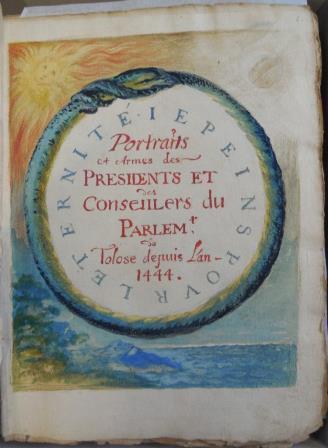 IE PEINS POVR LETERNITÉ.
Portraits
et Armes des
PRESIDENTS ET
des
Conseillers du
PARLEM.t
de
Tolose depuis L'an-
1444.